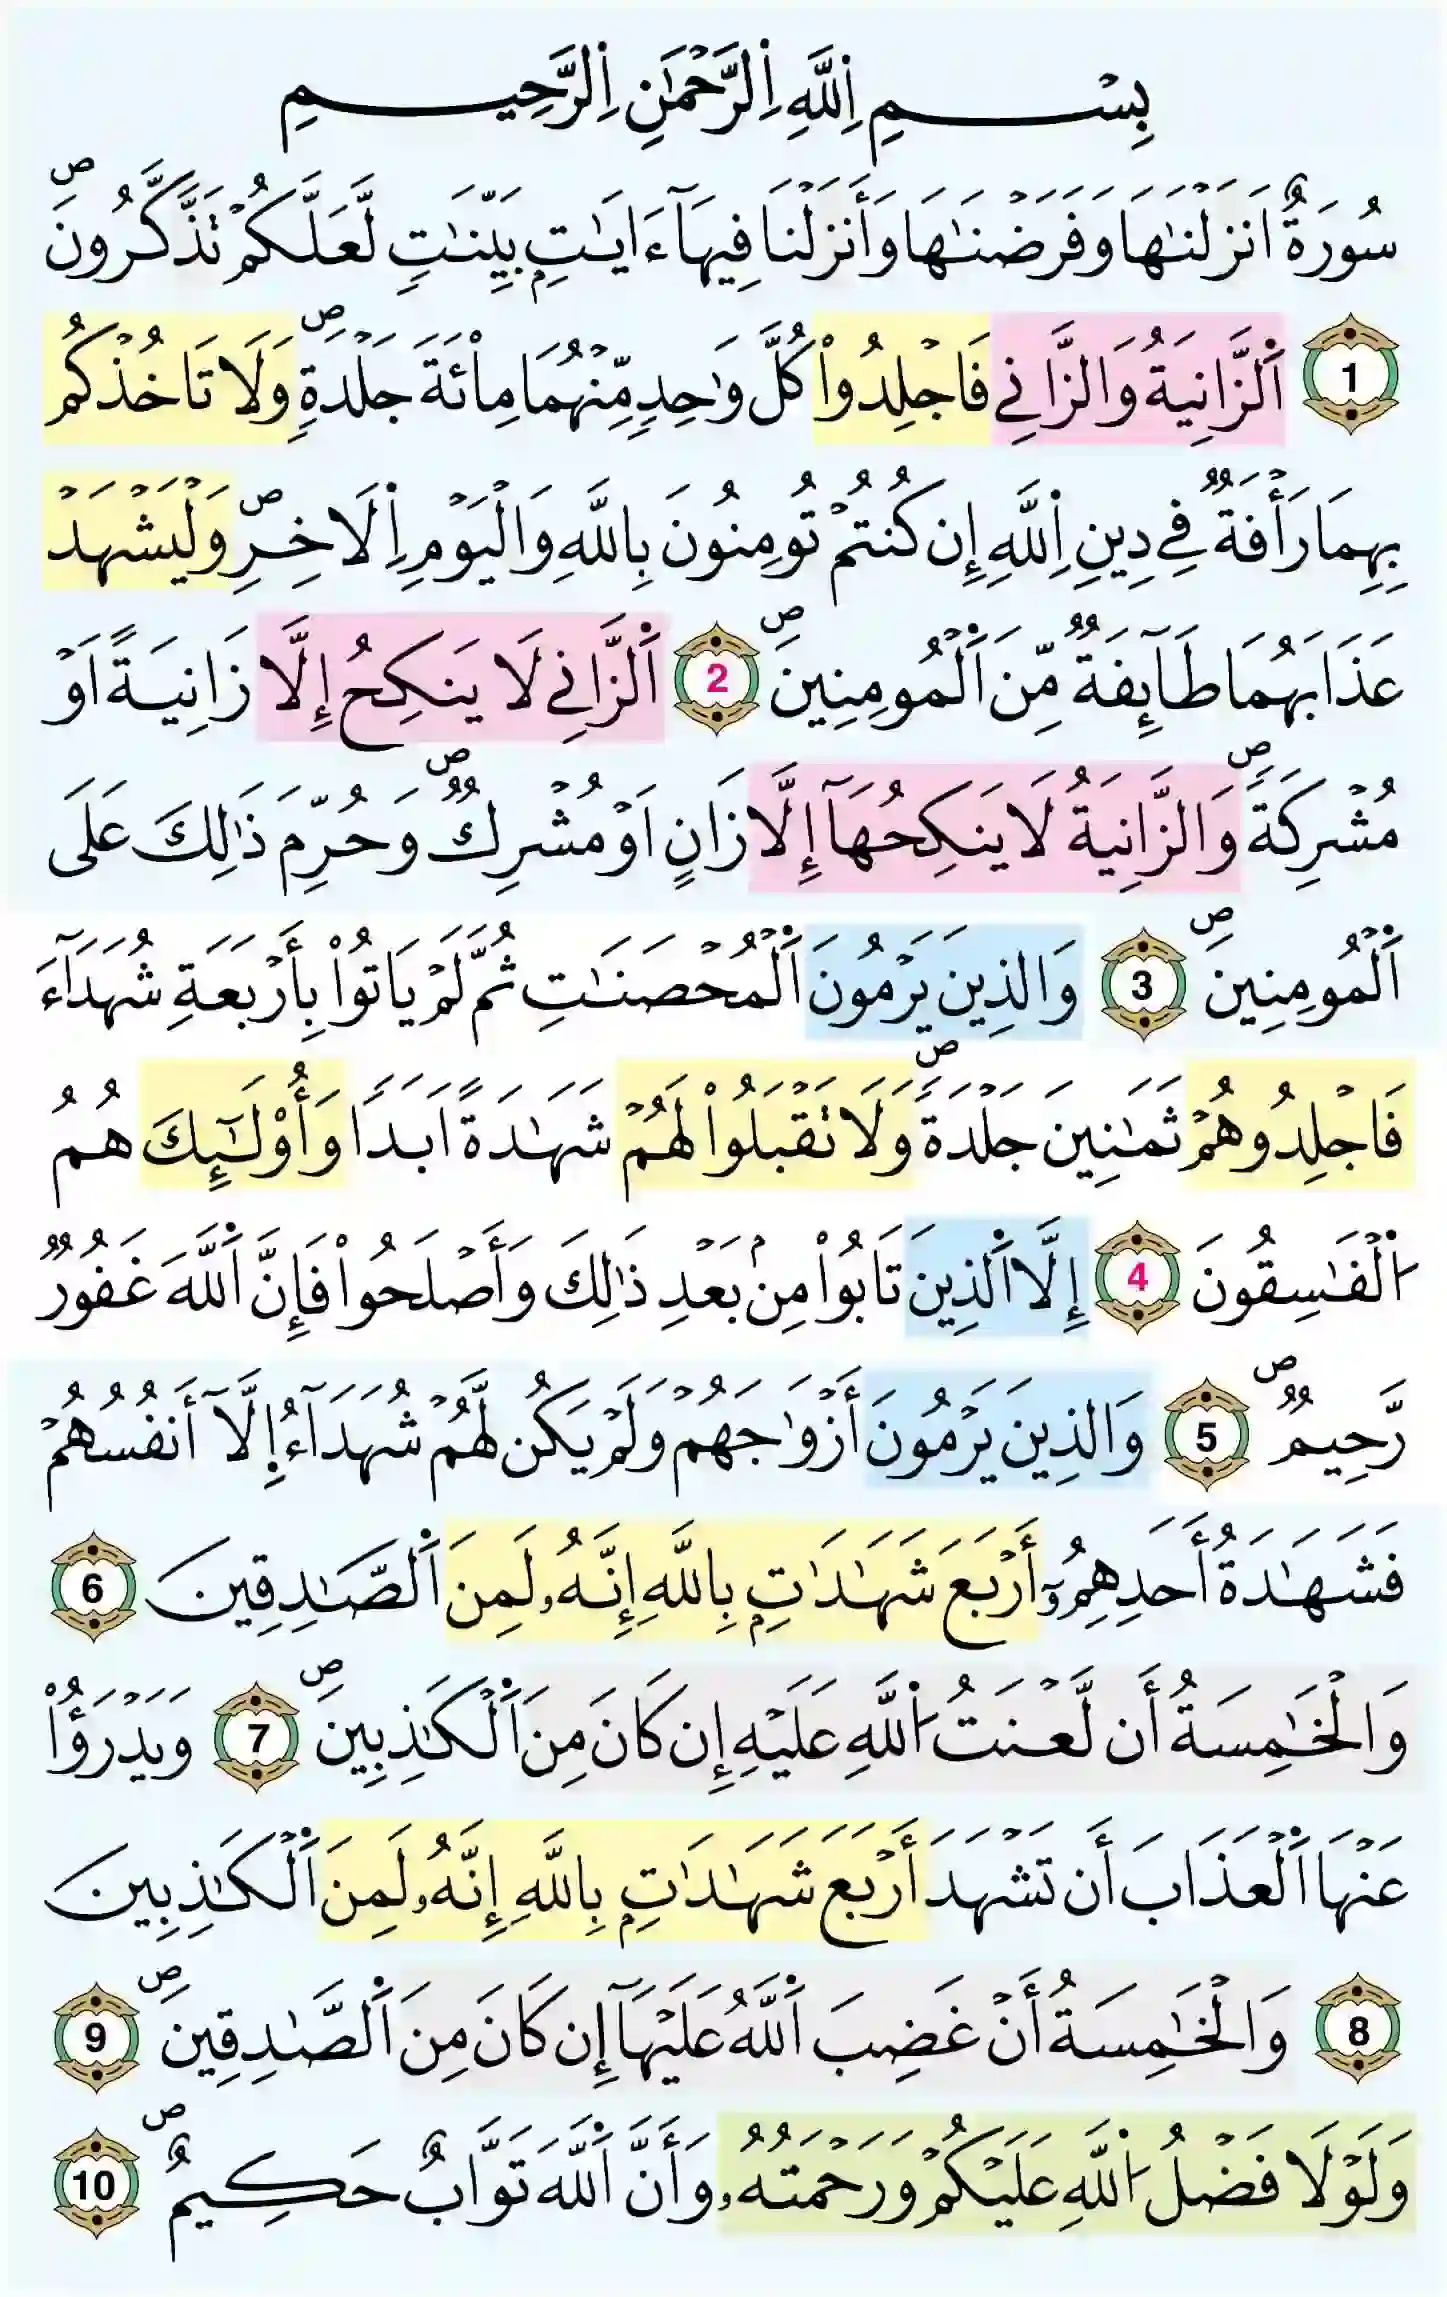 بِسْمِ اِللَّهِ اِلرَّحْمَٰنِ اِلرَّحِيمِ
سُورَةٌ اَنزَلْنَٰهَا وَفَرَضْنَٰهَا وَأَنزَلْنَا فِيهَآ ءَايَٰتِۭ بَيِّنَٰتٖ لَّعَلَّكُمْ تَذَّكَّرُونَۖ
1 اَ۬لزَّانِيَةُ وَالزَّانِے فَاجْلِدُواْ كُلَّ وَٰحِدٖ مِّنْهُمَا مِاْئَةَ جَلْدَةٖۖ وَلَا تَاخُذْكُم
بِهِمَا رَأْفَةٞ فِے دِينِ اِللَّهِ إِن كُنتُمْ تُومِنُونَ بِاللَّهِ وَالْيَوْمِ اِلَاخِرِۖ وَلْيَشْهَدْ
عَذَابَهُمَا طَآئِفَةٞ مِّنَ اَ۬لْمُومِنِينَۖ 2 اَ۬لزَّانِے لَا يَنكِحُ إِلَّا زَانِيَةً اَوْ
مُشْرِكَةٗۖ وَالزَّانِيَةُ لَا يَنكِحُهَآ إِلَّا زَانٍ اَوْ مُشْرِكٞۖ وَحُرِّمَ ذَٰلِكَ عَلَى
اَ۬لْمُومِنِينَۖ 3 وَالذِينَ يَرْمُونَ اَ۬لْمُحْصَنَٰتِ ثُمَّ لَمْ يَاتُواْ بِأَرْبَعَةِ شُهَدَآءَ
فَاجْلِدُوهُمْ ثَمَٰنِينَ جَلْدَةٗۖ وَلَا تَقْبَلُواْ لَهُمْ شَهَٰدَةً اَبَداٗ وَأُوْلَٰٓئِكَ هُمُ
اُ۬لْفَٰسِقُونَ 4 إِلَّا اَ۬لذِينَ تَابُواْ مِنۢ بَعْدِ ذَٰلِكَ وَأَصْلَحُواْ فَإِنَّ اَ۬للَّهَ غَفُورٞ
رَّحِيمٞۖ 5 وَالذِينَ يَرْمُونَ أَزْوَٰجَهُمْ وَلَمْ يَكُن لَّهُمْ شُهَدَآءُ اِ۪لَّآ أَنفُسُهُمْ
فَشَهَٰدَةُ أَحَدِهِمُۥٓ أَرْبَعَ شَهَٰدَٰتِۭ بِاللَّهِ إِنَّهُۥ لَمِنَ اَ۬لصَّٰدِقِينَ 6
وَالْخَٰمِسَةُ أَن لَّعْنَتُ اُ۬للَّهِ عَلَيْهِ إِن كَانَ مِنَ اَ۬لْكَٰذِبِينَۖ 7 وَيَدْرَؤُاْ
عَنْهَا اَ۬لْعَذَابَ أَن تَشْهَدَ أَرْبَعَ شَهَٰدَٰتِۭ بِاللَّهِ إِنَّهُۥ لَمِنَ اَ۬لْكَٰذِبِينَ
8 وَالْخَٰمِسَةُ أَنْ غَضِبَ اَ۬للَّهُ عَلَيْهَآ إِن كَانَ مِنَ اَ۬لصَّٰدِقِينَۖ 9
وَلَوْلَا فَضْلُ اُ۬للَّهِ عَلَيْكُمْ وَرَحْمَتُهُۥ وَأَنَّ اَ۬للَّهَ تَوَّابٌ حَكِيمٌۖ 10